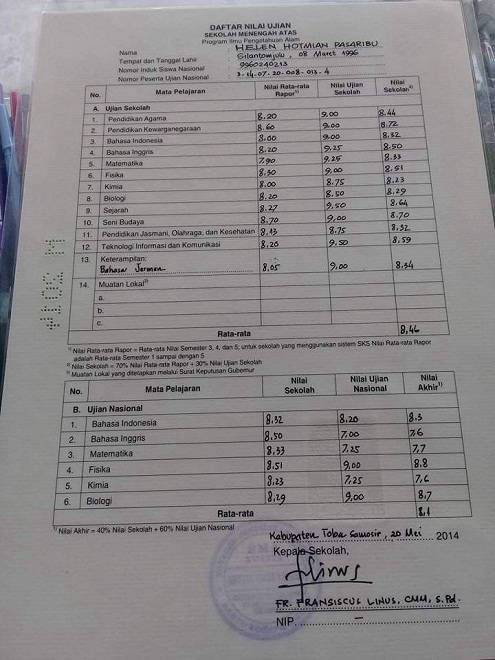 DAFTAR NILAI UJIAN
SEKOLAH MENENGAH ATAS
Program Ilmu Pengetahuan Alam
Nama HELEN HOTMIAN PASARIBU
Tempat dan Tanggal Lahir Silantomjulu, 08 Maret 1996
Nomor Induk Siswa Nasional 9960240213
Nomor Peserta Ujian Nasional 3-14.07.20.008.013.4
No. Mata Pelajaran Nilai Rata-rata Rapor1) Nilai Ujian Sekolah Nilai Sekolah2)
A. Ujian Sekolah
1. Pendidikan Agama 8,20 9,00 8,44
2. Pendidikan Kewarganegaraan 8,60 9,00 8,72
3. Bahasa Indonesia 8,00 9,00 8,32
4. Bahasa Inggris 8,20 9,25 8,50
5. Matematika 7,90 9,25 8,33
6. Fisika 8,30 9,00 8,51
7. Kimia 8,00 8,75 8,23
8. Biologi 8,20 8,50 8,29
9. Sejarah 8,27 9,50 8,64
10. Seni Budaya 8,70 9,00 8,70
11. Pendidikan Jasmani, Olahraga, dan Kesehatan 8,13 8,75 8,32
12. Teknologi Informasi dan Komunikasi 8,20 9,50 8,59
13. Keterampilan:
Bahasa Jerman 8,05 9,00 8,34
14. Muatan Lokal3)
a.
b.
c.
Rata-rata 8,46
1) Nilai Rata-rata Rapor = Rata-rata Nilai Semester 3, 4, dan 5; untuk sekolah yang menggunakan sistem SKS Nilai Rata-rata Rapor
adalah Rata-rata Semester 1 sampai dengan 5
2) Nilai Sekolah = 70% Nilai Rata-rata Rapor + 30% Nilai Ujian Sekolah
3) Muatan Lokal yang ditetapkan melalui Surat Keputusan Gubernur
No. Mata Pelajaran Nilai Sekolah Nilai Ujian Nasional Nilai Akhir1)
B. Ujian Nasional
1. Bahasa Indonesia 8,32 8,20 8,3
2. Bahasa Inggris 8,50 7,00 7,6
3. Matematika 8,33 7,25 7,7
4. Fisika 8,51 9,00 8,8
5. Kimia 8,23 7,25 7,6
6. Biologi 8,29 9,00 8,7
Rata-rata 8,1
1) Nilai Akhir = 40% Nilai Sekolah + 60% Nilai Ujian Nasional
Kabupaten Toba Samosir, 20 Mei 2014
Kepala Sekolah,
FR. FRANSISCUS LINUS, CMM, S.Pd.
NIP. –